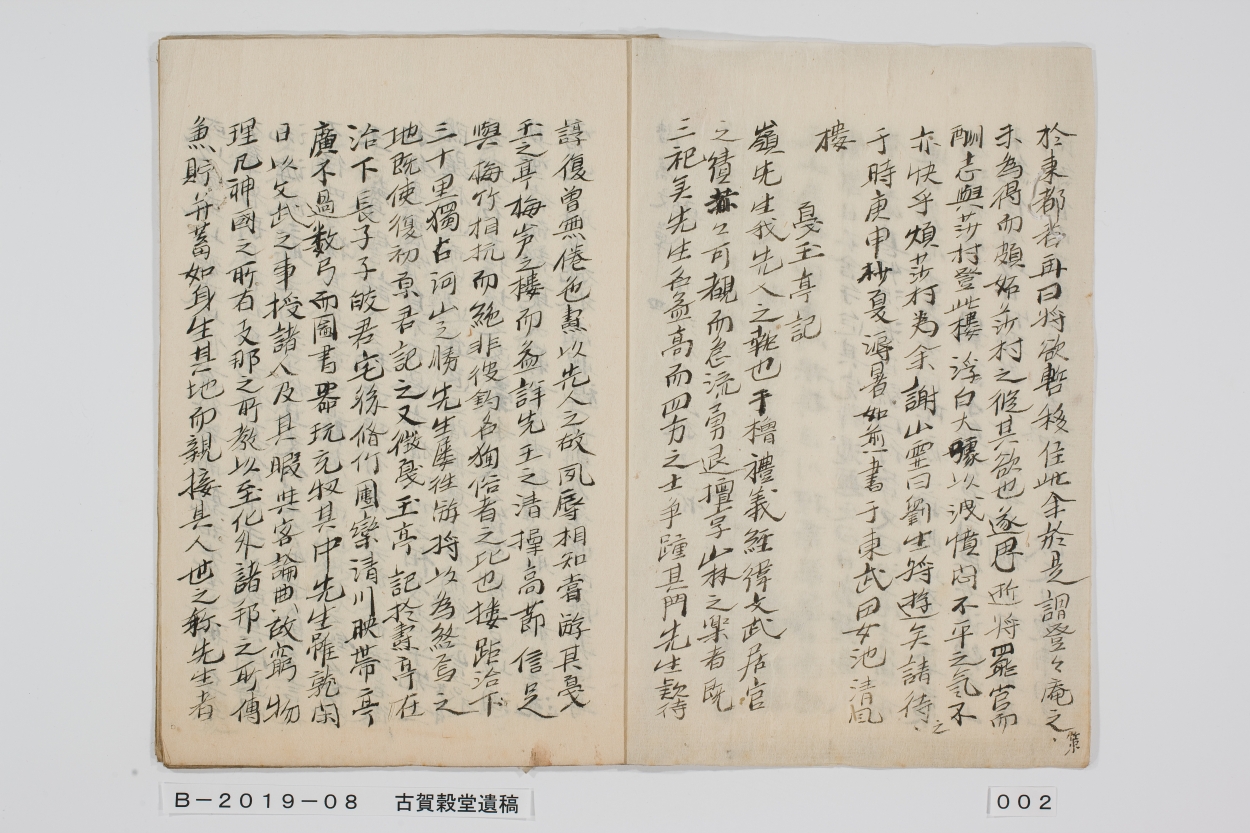 於東都者再曰将欲暫移住此余於是謂登々庵之
策
未為得而頗如莎村之従其欲也遂思逝将罷官而
酬志與莎村登此樓浮白大嚼以洩憤悶不平之気不
亦快乎煩莎村為余謝山霊曰劉生将遊矣請待之
于時庚申杪夏溽暑如煎書于東武田女池清風
樓
戞玉亭記
嶺先生我先人之執也干櫓禮義経緯文武居官
之績赫々可観而急流勇退擅享山林之楽者既
三祀矣先生名益高而四方之士争踵其門先生款待
諄復曽無倦色憲以先人之故夙辱相知嘗游其戞
玉之亭梅岩之樓而益詳先生之清操高節信足
與梅竹相抗而絶非彼釣名狥俗者之比也樓距治下
三十里獨占河山之勝先生屡往游将以為終焉之
地既使復初原君記之又徴戞玉亭記於憲亭在
治下長子子皎君宅後脩竹圍欒清川映帯亭
廣不過数弓而圖書器玩充牣其中先生雖就閑
日以文武之事授諸人及其暇共客論曲故窮物
理凡神國之所有支那之所教以至化外諸邦之所傳
魚貯并蓄如身生其地而親接其人世之称先生者
B－2019－08　古賀穀堂遺稿
002